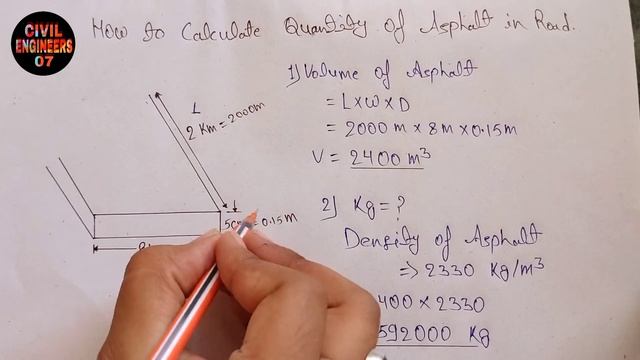 CIVIL
ENGINEERS
07
How to Calculate Quantity of Asphalt in Road.
1) Volume of Asphalt
= L x W x D
= 2000 m x 8 m x 0.15 m
V = 2400 m³
L
2 Km = 2000m
= 0.15 m
2) Kg = ?
Density of Asphalt
⇒ 2330 Kg/m³
400 x 2330
592000 Kg